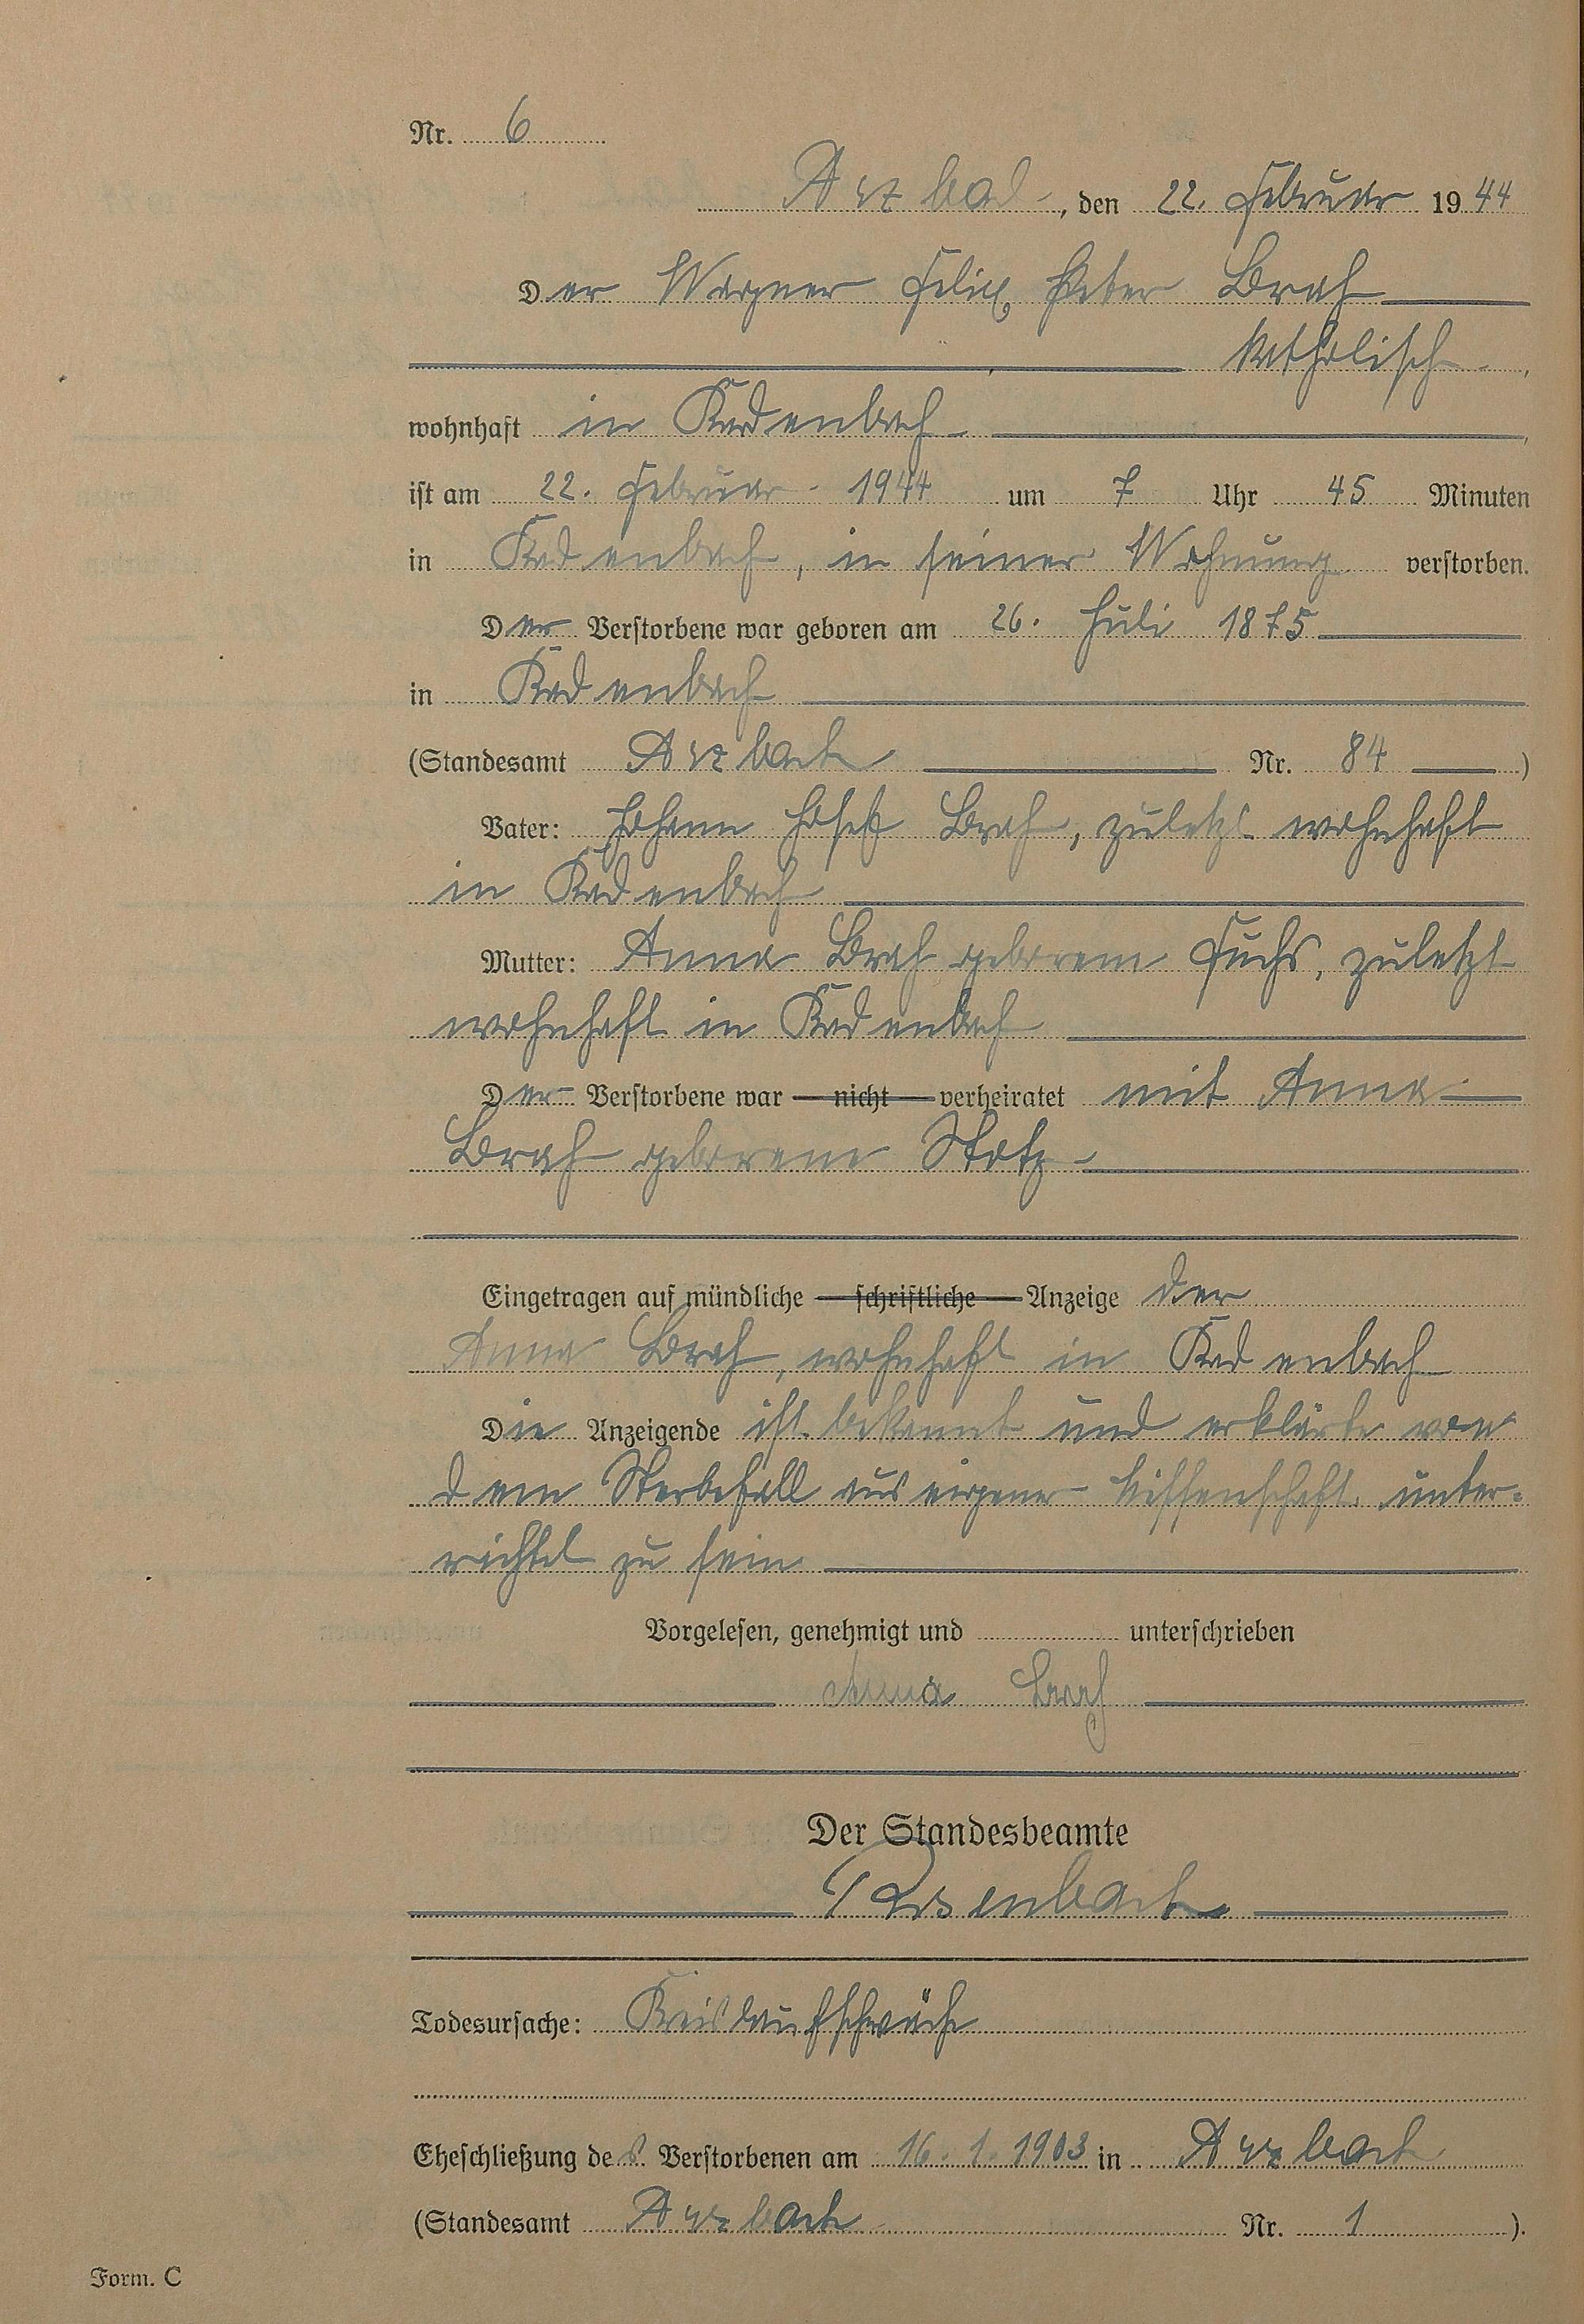 Nr. 6
Arzbach, den 22. Februar 1944
Der Wagner Felix Peter Braf
katholisch,
wohnhaft in Kadenbach,
ist am 22. Februar 1944 um 7 Uhr 45 Minuten
in Kadenbach, in seiner Wohnung verstorben.
Der Verstorbene war geboren am 26. Juli 1875
in Kadenbach
(Standesamt Arzbach Nr. 84)
Vater: Johann Josef Braf, zuletzt wohnhaft
in Kadenbach
Mutter: Anna Braf geborene Fuchs, zuletzt
wohnhaft in Kadenbach
Der Verstorbene war nicht verheiratet mit Anna
Braf geborene Stotz
Eingetragen auf mündliche schriftliche Anzeige der
Anna Braf, wohnhaft in Kadenbach
Die Anzeigende ist bekannt und erklärte von
dem Sterbefall aus eigener Wissenschaft unter-
richtet zu sein
Vorgelesen, genehmigt und unterschrieben
Anna Braf
Der Standesbeamte
Todesursache: Kreislaufschwäche
Eheschließung des Verstorbenen am 16.1.1903 in Arzbach
(Standesamt Arzbach Nr. 1).
Form. C